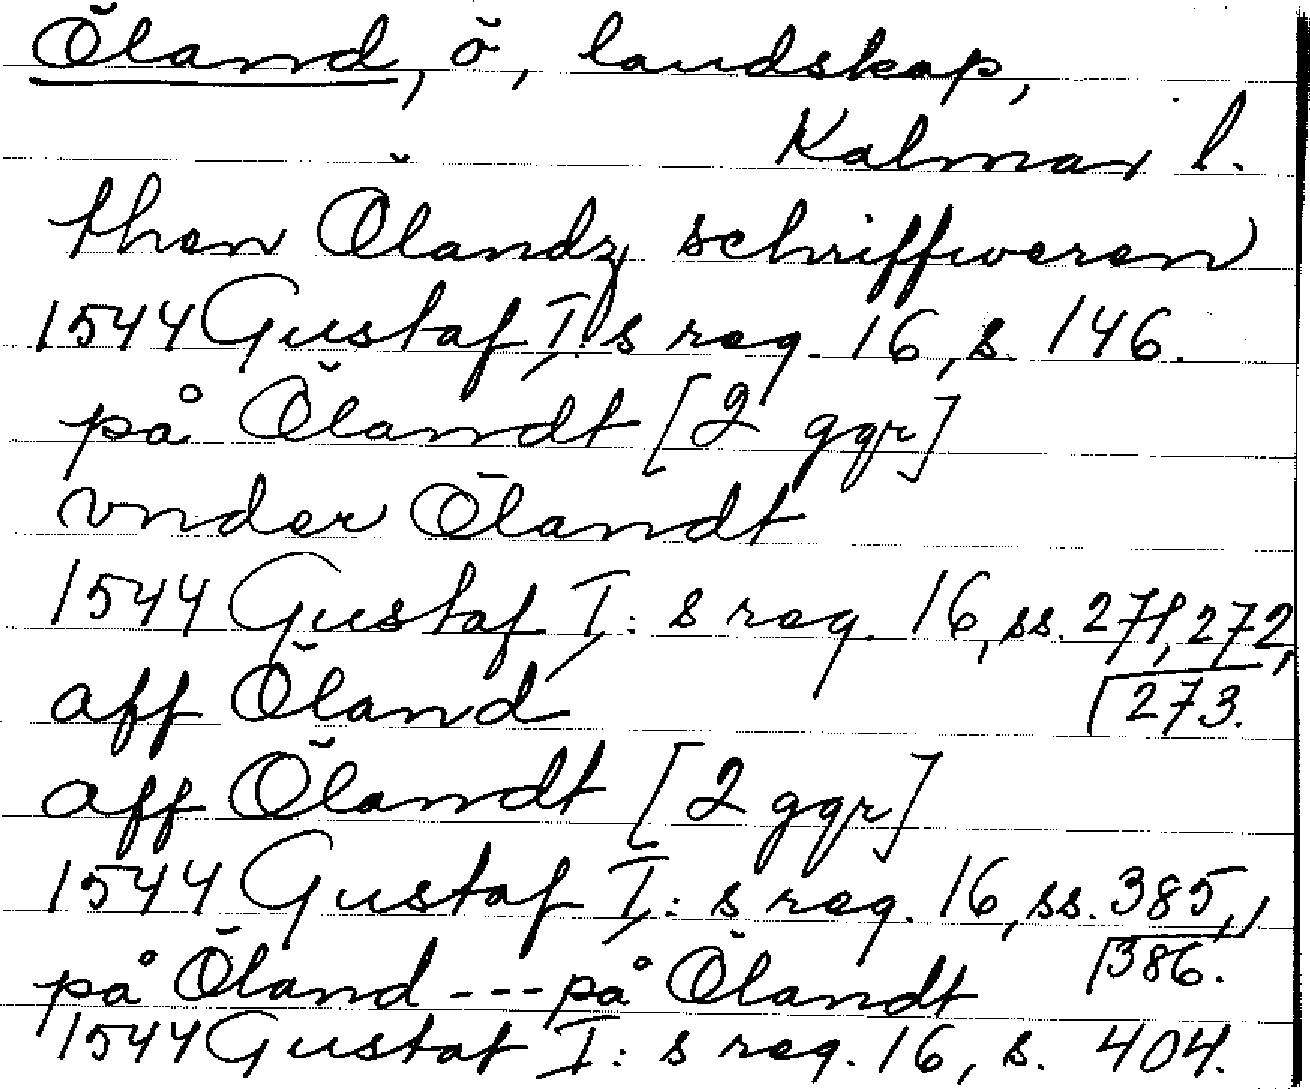 Öland, ö, landskap,
Kalmar l.
then Ölandz schriffweren
1544 Gustaf I:s reg. 16, s. 146.
på Ölandt [2 ggr]
vnder Ölandt
1544 Gustaf I:s reg. 16, ss. 271, 272,
273.
aff Öland
aff Ölandt [2 ggr]
1544 Gustaf I:s reg. 16, ss. 385,
386.
på Öland --- på Ölandt
1544 Gustaf I:s reg. 16, s. 404.